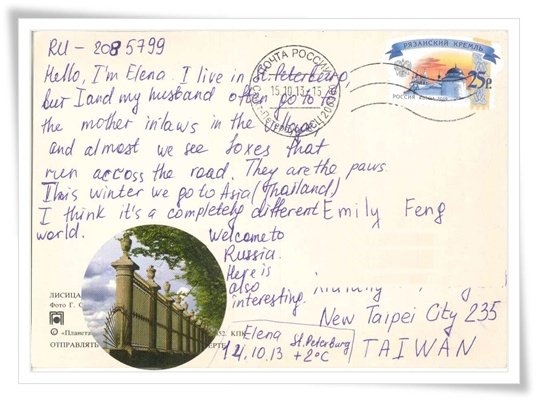 RU-2085799
Hello, I'm Elena. I live in St. Peterburg,
but I and my husband often go to
the mother in laws in the
and almost we see foxes that
run accoss the road. They are the paws.
This winter we go to Asia (Thailand)
I think it's a completely different
world.
Welcome to
Russia.
Here is
also
interesting.
ПОЧТА РОССИИ
15.10.13-15
РЯЗАНСКИЙ КРЕМЛЬ
25р
РОССИЯ
Emily Feng
New Taipei City 235
TAIWAN
Elena St. Peterburg
14.10.13 +2°C
ЛИСИЦА
Фото Г. С
© «Планета
ОТПРАВЛЯТЬ